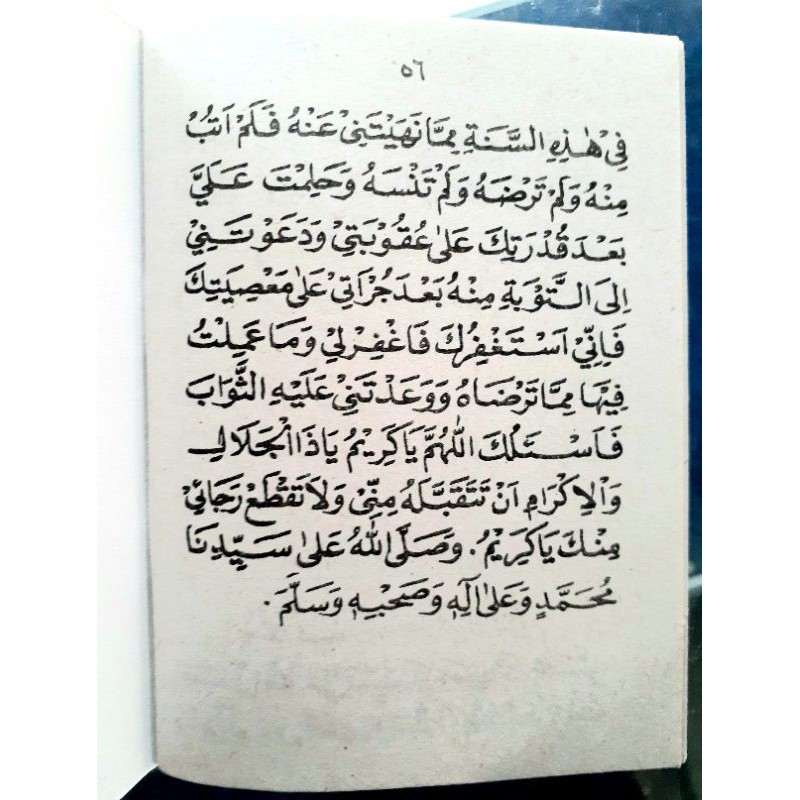 ٥٦
فِيْ هٰذِهِ السَّنَةِ مِمَّا نَهَيْتَنِيْ عَنْهُ فَلَمْ اَتُبْ
مِنْهُ وَلَمْ تَرْضَهُ وَلَمْ تَنْسَهُ وَحَلِمْتَ عَلَيَّ
بَعْدَ قُدْرَتِكَ عَلٰى عُقُوْبَتِيْ وَدَعَوْتَنِيْ
اِلَى التَّوْبَةِ مِنْهُ بَعْدَ جُرْاَتِيْ عَلٰى مَعْصِيَتِكَ
فَاِنِّيْ اَسْتَغْفِرُكَ فَاغْفِرْلِيْ وَمَا عَمِلْتُ
فِيْهَا مِمَّا تَرْضَاهُ وَوَعَدْتَنِيْ عَلَيْهِ الثَّوَابَ
فَاَسْئَلُكَ اللّٰهُمَّ يَا كَرِيْمُ يَا ذَا الْجَلَالِ
وَالْاِكْرَامِ اَنْ تَتَقَبَّلَهُ مِنِّيْ وَلَا تَقْطَعْ رَجَائِيْ
مِنْكَ يَا كَرِيْمُ. وَصَلَّى اللّٰهُ عَلٰى سَيِّدِنَا
مُحَمَّدٍ وَعَلٰى اٰلِهِ وَصَحْبِهِ وَسَلَّمَ.